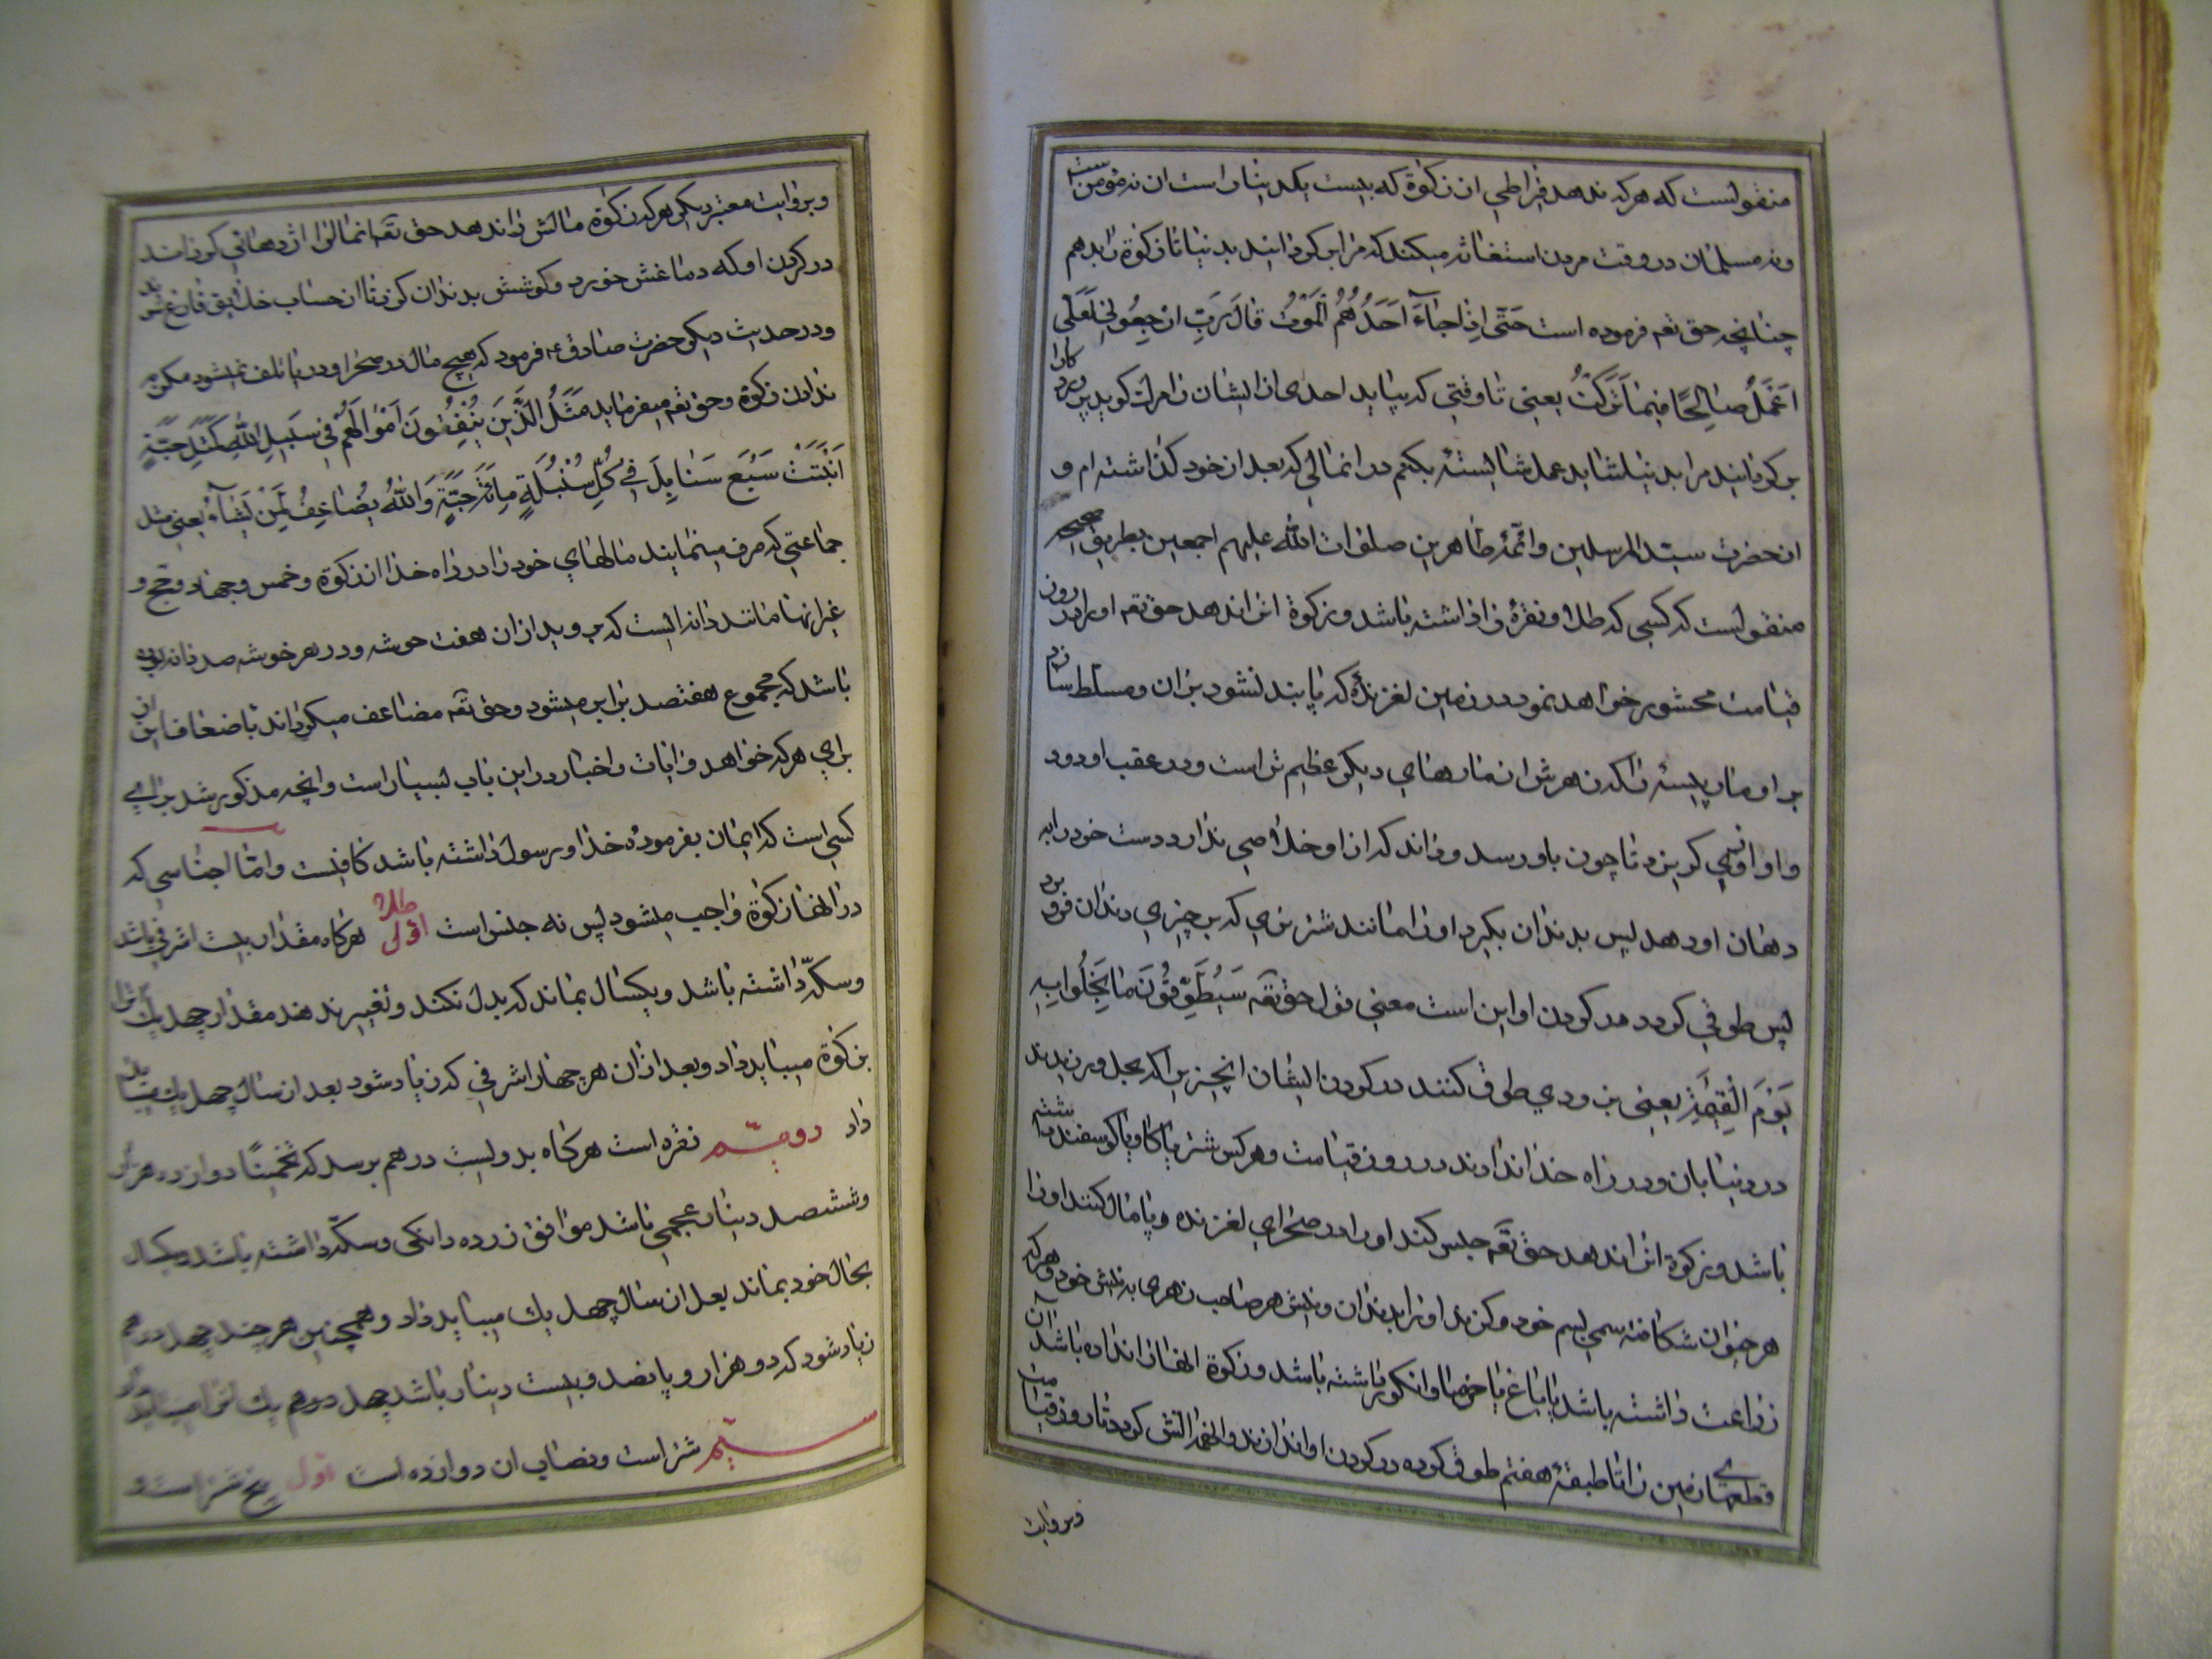 منقولست که هرکه ندهد قیراطی از زکوة که بیست یکدینار است ان نه مؤمن است
ونه مسلمان در وقت مردن استغاثه میکند که مرا برگردانید بدنیا تا زکوة را بدهم
چنانچه حق تعه فرموده است حَتّی اِذا جآءَ اَحَدَهُمُ الْمَوْتُ قالَ رَبِّ ارْجِعُونِ لَعَلّی
اَعْمَلُ صالِحًا فیما تَرَکْتُ یعنی تا وقتی که بیاید احدی از ایشان را مرگ کوید پروردکارا
بر کردانید مرا بدنیا شاید عمل شایسته بکنم در انمالی که بعد از خود کذاشته ام و
از حضرت سید المرسلین وائمّه طاهرین صلوات الله علیهم اجمعین بطریق صحیحه
منقولست که کسی که طلا و نقره را داشته باشد و زکوة انرا ندهد حق تعه او را در روز
قیامت محشور خواهد نمود در زمین لغزنده که پا بند نشود بران ومسلط سازد
بر او مار پیسه را که زهرش از مارهای دیکر عظیم تر است ودر عقب او دود
واو از وی کریزد تا چون باو رسد وداند که از او خلاصی ندارد دست خود را به
دهان او دهد پس بدندان بکیرد او را مانند شتر نری که بر چیزی دندان فرو برد
پس طوقی کردد در کردن او این است معنی قول حق تعه سَیُطَوَّقُونَ ما بَخِلُوا بِهِ
یَوْمَ الْقِیمَةِ یعنی بزودی طوق کنند در کردن ایشان انچیزیرا که بخل ورزیدند
در دنیا بان و در راه خدا ندادند در روز قیامت و هرکس شتر یا کاو یا کوسفند داشته
باشد و زکوة انرا ندهد حق تعه حبس کند او را در صحرای لغزنده و پامال کنند او را
هر حیوان شکافته سمی بسم خود و کزند او را بدندان ونیش هر صاحب زهری به نیش خود و هرکه
زراعت داشته باشد یا باغ یا خرما و انکور داشته باشد و زکوة انها را نداده باشد ان
قطعهای زمین را تا طبقهٔ هفتم طوق کرده در کردن او اندازند وانهمه اتش کردد تا روز قیامت
وبروایت
وبروایت معتبر دیکر هرکه زکوة مالش را ندهد حق تعه انمالرا اژدهائی کرداند
در کردن او که دماغش خورد وکوشش بدندان کزد تا از حساب خلایق فارغ شود
ودر حدیث دیکر حضرت صادق ع فرمود که هیچ مال در صحرا و دریا تلف نمیشود مکر بر
ندادن زکوة وحق تعه میفرماید مَثَلُ الَّذینَ یُنْفِقُونَ اَمْوالَهُمْ فی سَبیلِ اللّهِ کَمَثَلِ حَبَّةٍ
اَنْبَتَتْ سَبْعَ سَنابِلَ فی کُلِّ سُنْبُلَةٍ مِائَةُ حَبَّةٍ وَاللّهُ یُضاعِفُ لِمَنْ یَشآءُ یعنی مثل
جماعتی که صرف مینمایند مالهای خود را در راه خدا از زکوة وخمس وجهاد وحج و
غیر انها مانند دانه ایست که بروید از ان هفت خوشه ودر هر خوشه صد دانه بوده
باشد که مجموع هفتصد برابر میشود وحق تعه مضاعف میکرداند باضعاف این
برای هرکه خواهد وایات واخبار در این باب بسیار است وانچه مذکور شد برای
کسی است که ایمان بفرمودهٔ خدا ورسول داشته باشد کافیست واما اجناسی که
در انها زکوة واجب میشود پس نه جنس است اوّلی طلا هرکاه مقدار بیست اشرفی باشد
وسکّه داشته باشد ویکسال بماند که بدل نکند وتغییر ندهند مقدار چهل یک انرا
بزکوة میباید داد وبعد از ان هر چهار اشرفی که زیاد شود بعد از سال چهل یک میباید
داد دویّم نقره است هرکاه بدویست درهم برسد که تخمینًا دوازده هزار
وششصد دینار عجمی باشد موافق زر ده دانکی وسکّه داشته باشد ویکسال
بحال خود بماند بعد از سال چهل یک میباید داد وهمچنین هر چند چهل درهم
زیاد شود که دو هزار و پانصد و بیست دینار باشد چهل درهم یک انرا میباید داد
سیّم شتر است ونصاب ان دوازده است اول پنج شتر است و